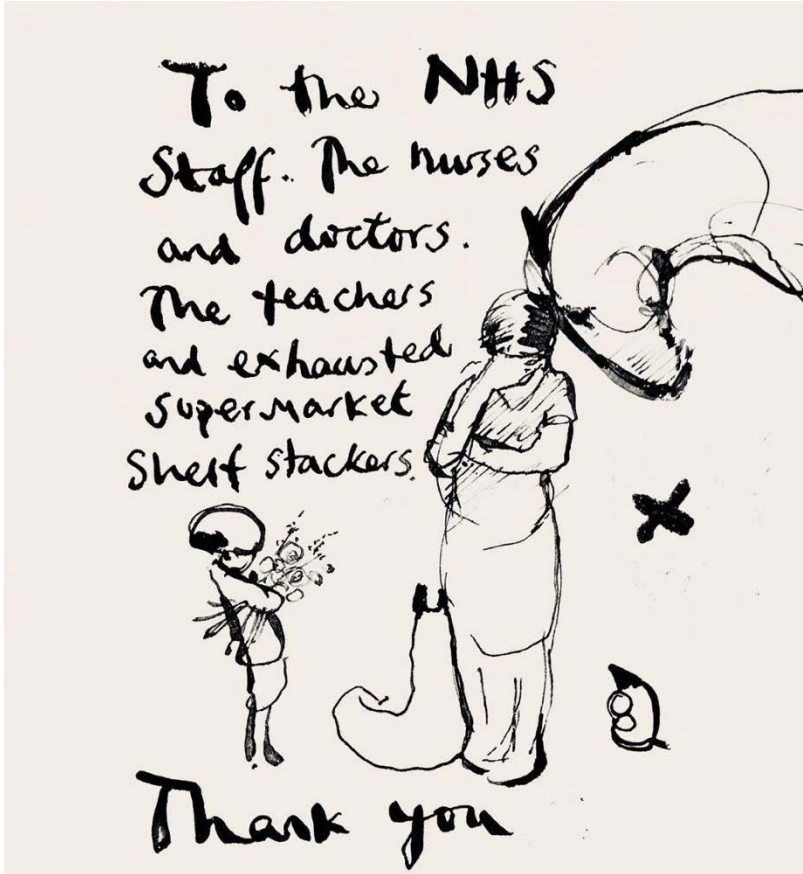 To the NHS
Staff. The nurses
and doctors.
The teachers
and exhausted
supermarket
shelf stackers.
Thank you